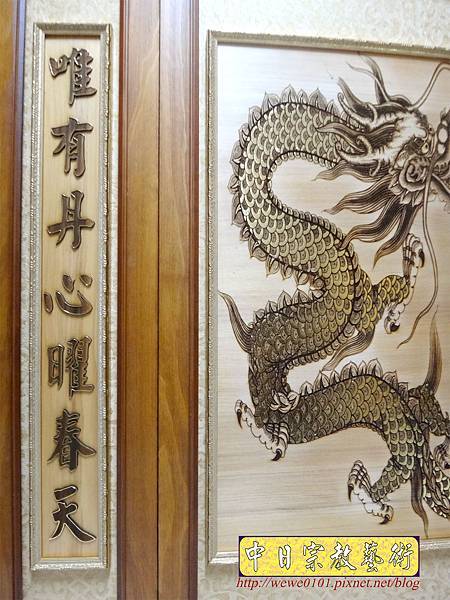 唯有丹心曜春天
中日宗教藝術
http://wewe0101.pixnet.net/blog